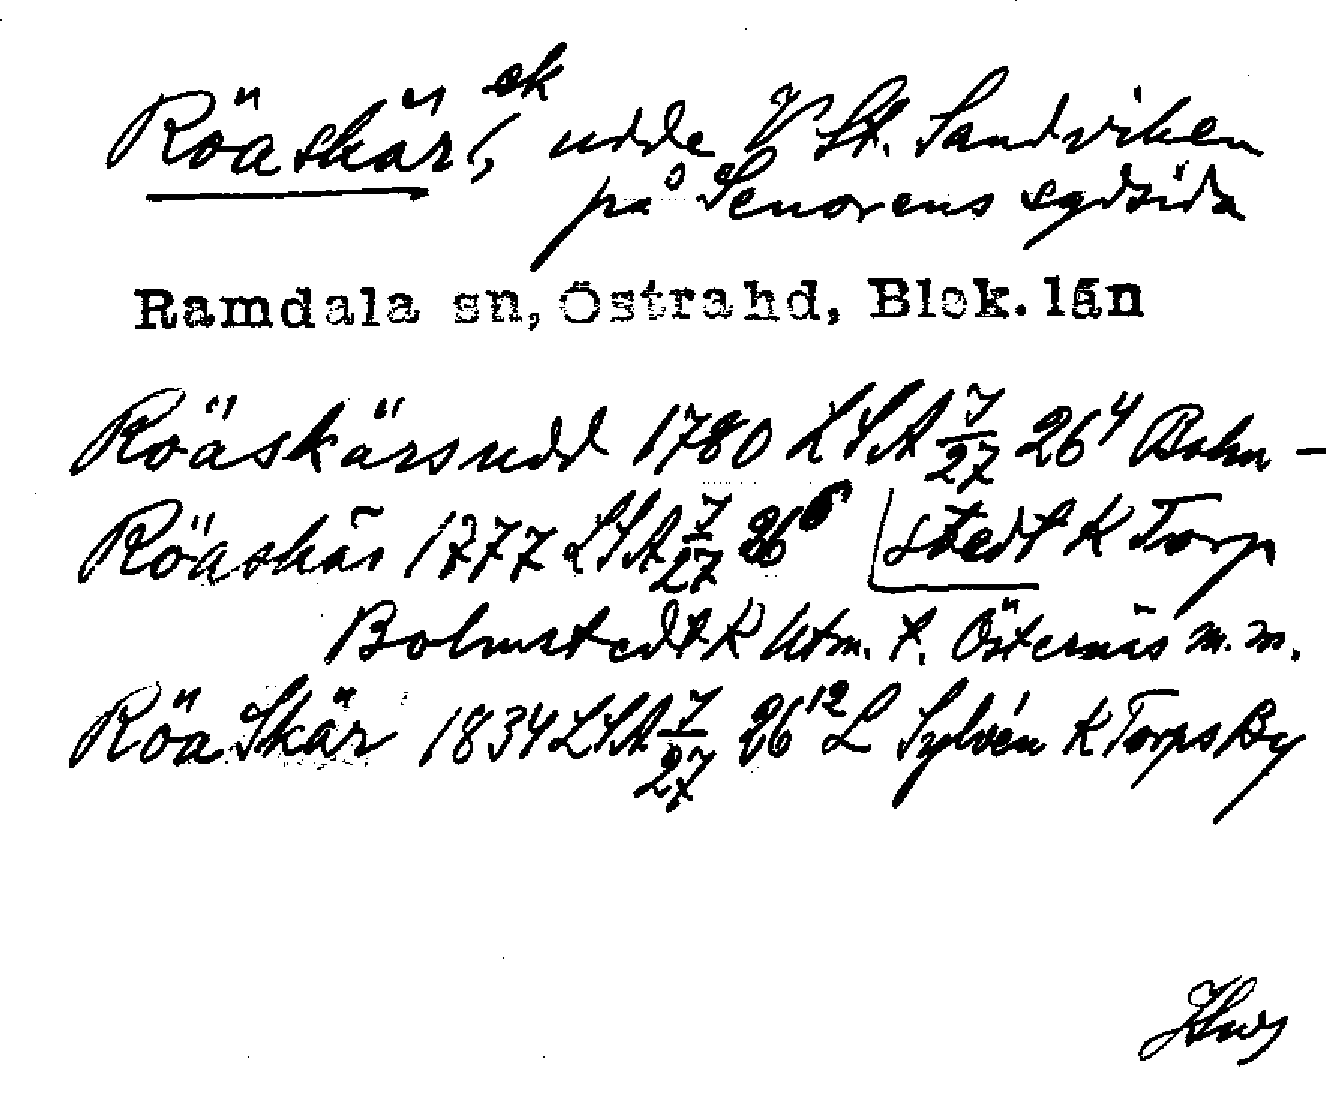 Röaskär, ek udde V St. Sandviken
på Senorens sydsida
Ramdala sn, Östrahd, Blek. län
Röäskärsudd 1780 LSA 7/27 26⁴ Bolm-
Röaskär 1777 LSA 7/27 26⁶ stedt K Torp
Bolmstedt K Utm. t. Östernäs m. m.
Röa Skär 1834 LSA 7/27 26¹² L Sylvén K Torps By